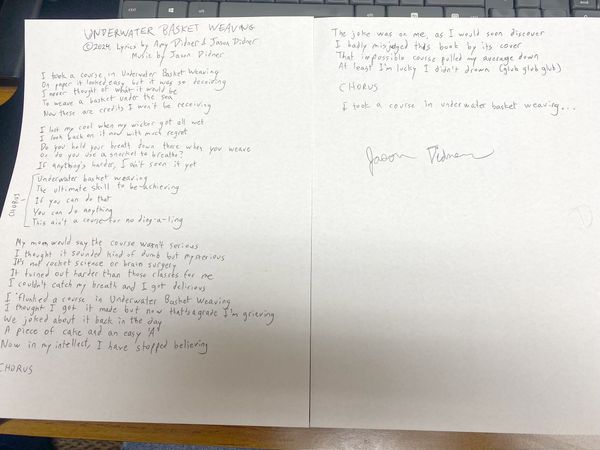 UNDERWATER BASKET WEAVING
©2024 Lyrics by Amy Didner & Jason Didner
Music by Jason Didner
I took a course in Underwater Basket Weaving
On paper it looked easy but it was so deceiving
I never thought of what it would be
To weave a basket under the sea
Now these are credits I won't be receiving
I lost my cool when my wicker got all wet
I look back on it now with much regret
Do you hold your breath down there when you weave
Or do you use a snorkel to breathe?
If anything's harder, I ain't seen it yet
CHORUS
Underwater basket weaving
The ultimate skill to be achieving
If you can do that
You can do anything
This ain't a course for no ding-a-ling
My mom would say the course wasn't serious
I thought it sounded kind of dumb but mysterious
It's not rocket science or brain surgery
It turned out harder than those classes for me
I couldn't catch my breath and I got delirious
I flunked a course in Underwater Basket Weaving
I thought I got it made but now that's a grade I'm grieving
We joked about it back in the day
A piece of cake and an easy 'A'
Now in my intellect, I have stopped believing
CHORUS
The joke was on me, as I would soon discover
I badly misjudged this book by its cover
That impossible course pulled my average down
At least I'm lucky I didn't drown (glub glub glub)
CHORUS
I took a course in underwater basket weaving...
Jason Didner